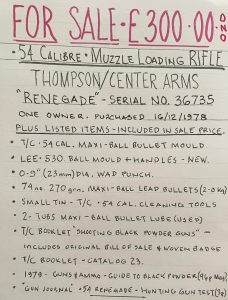 FOR SALE·£300.00 ONO
·54 CALIBRE·MUZZLE LOADING RIFLE
THOMPSON/CENTER ARMS
"RENEGADE"-SERIAL NO. 36735
ONE OWNER. PURCHASED 16/12/1978
PLUS LISTED ITEMS-INCLUDED IN SALE PRICE.
• T/C·54 CAL. MAXI-BALL BULLET MOULD.
• LEE·530. BALL MOULD+HANDLES-NEW.
• 0-9" (23mm) DIA. WAD PUNCH.
• 74 no. 270 grn. MAXI-BALL LEAD BULLETS (2-0 kg)
• SMALL TIN-T/C·54 CAL. CLEANING TOOLS
• 2-TUBS MAXI-BALL BULLET LUBE (USED)
• T/C BOOKLET "SHOOTING BLACK POWDER GUNS"-
INCLUDES ORIGINAL BILL OF SALE & WOVEN BADGE
• T/C BOOKLET-CATALOG 23.
• 1978-GUNS & AMMO-GUIDE TO BLACK POWDER
• "GUN JOURNAL"·54 RENEGADE-HUNTING GUN TEST